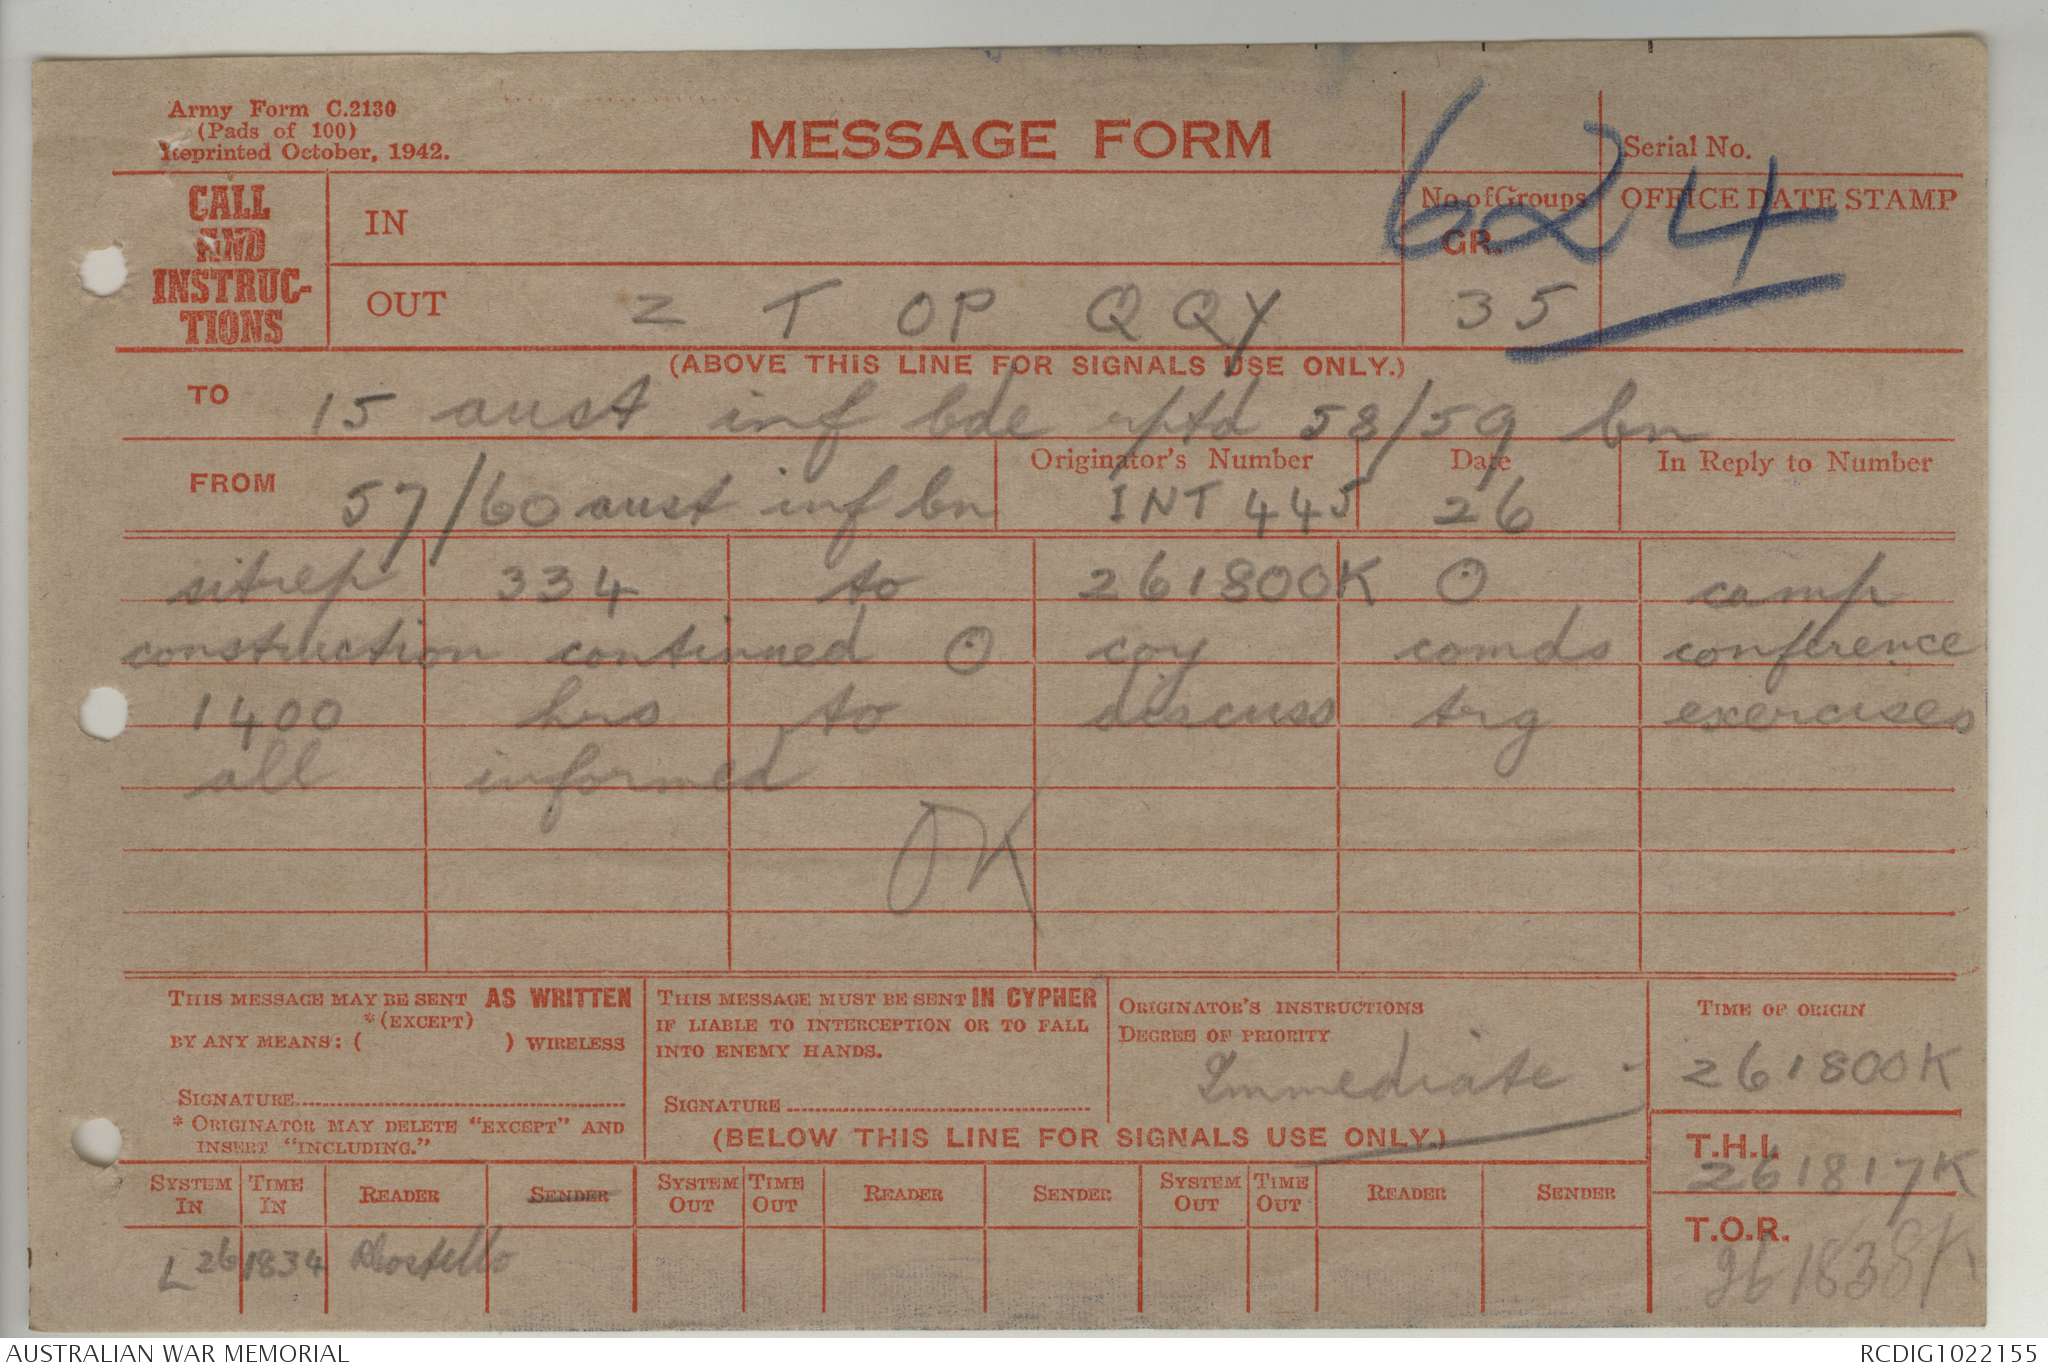 Army Form C.2130
(Pads of 100)
Reprinted October, 1942.
MESSAGE FORM
624
Serial No.
CALL AND INSTRUC-TIONS
IN
No of Groups
GR.
OFFICE DATE STAMP
OUT Z T OP QQY 35
(ABOVE THIS LINE FOR SIGNALS USE ONLY.)
TO 15 aust inf bde rptd 58/59 bn
FROM 57/60 aust inf bn
Originator's Number INT 445
Date 26
In Reply to Number
sitrep 334 to 261800K ⊙ camp
construction continued ⊙ coy comds conference
1400 hrs to discuss trg exercises
all informed
OK
THIS MESSAGE MAY BE SENT AS WRITTEN
*(EXCEPT)
BY ANY MEANS: ( ) WIRELESS
SIGNATURE
* ORIGINATOR MAY DELETE "EXCEPT" AND
INSERT "INCLUDING."
THIS MESSAGE MUST BE SENT IN CYPHER
IF LIABLE TO INTERCEPTION OR TO FALL
INTO ENEMY HANDS.
SIGNATURE
ORIGINATOR'S INSTRUCTIONS
DEGREE OF PRIORITY
Immediate -
TIME OF ORIGIN
261800K
(BELOW THIS LINE FOR SIGNALS USE ONLY.)
T.H.I.
261817K
T.O.R.
261838K
SYSTEM IN TIME IN READER SENDER SYSTEM OUT TIME OUT READER SENDER SYSTEM OUT TIME OUT READER SENDER
L 26 1834 DCostello
AUSTRALIAN WAR MEMORIAL
RCDIG1022155